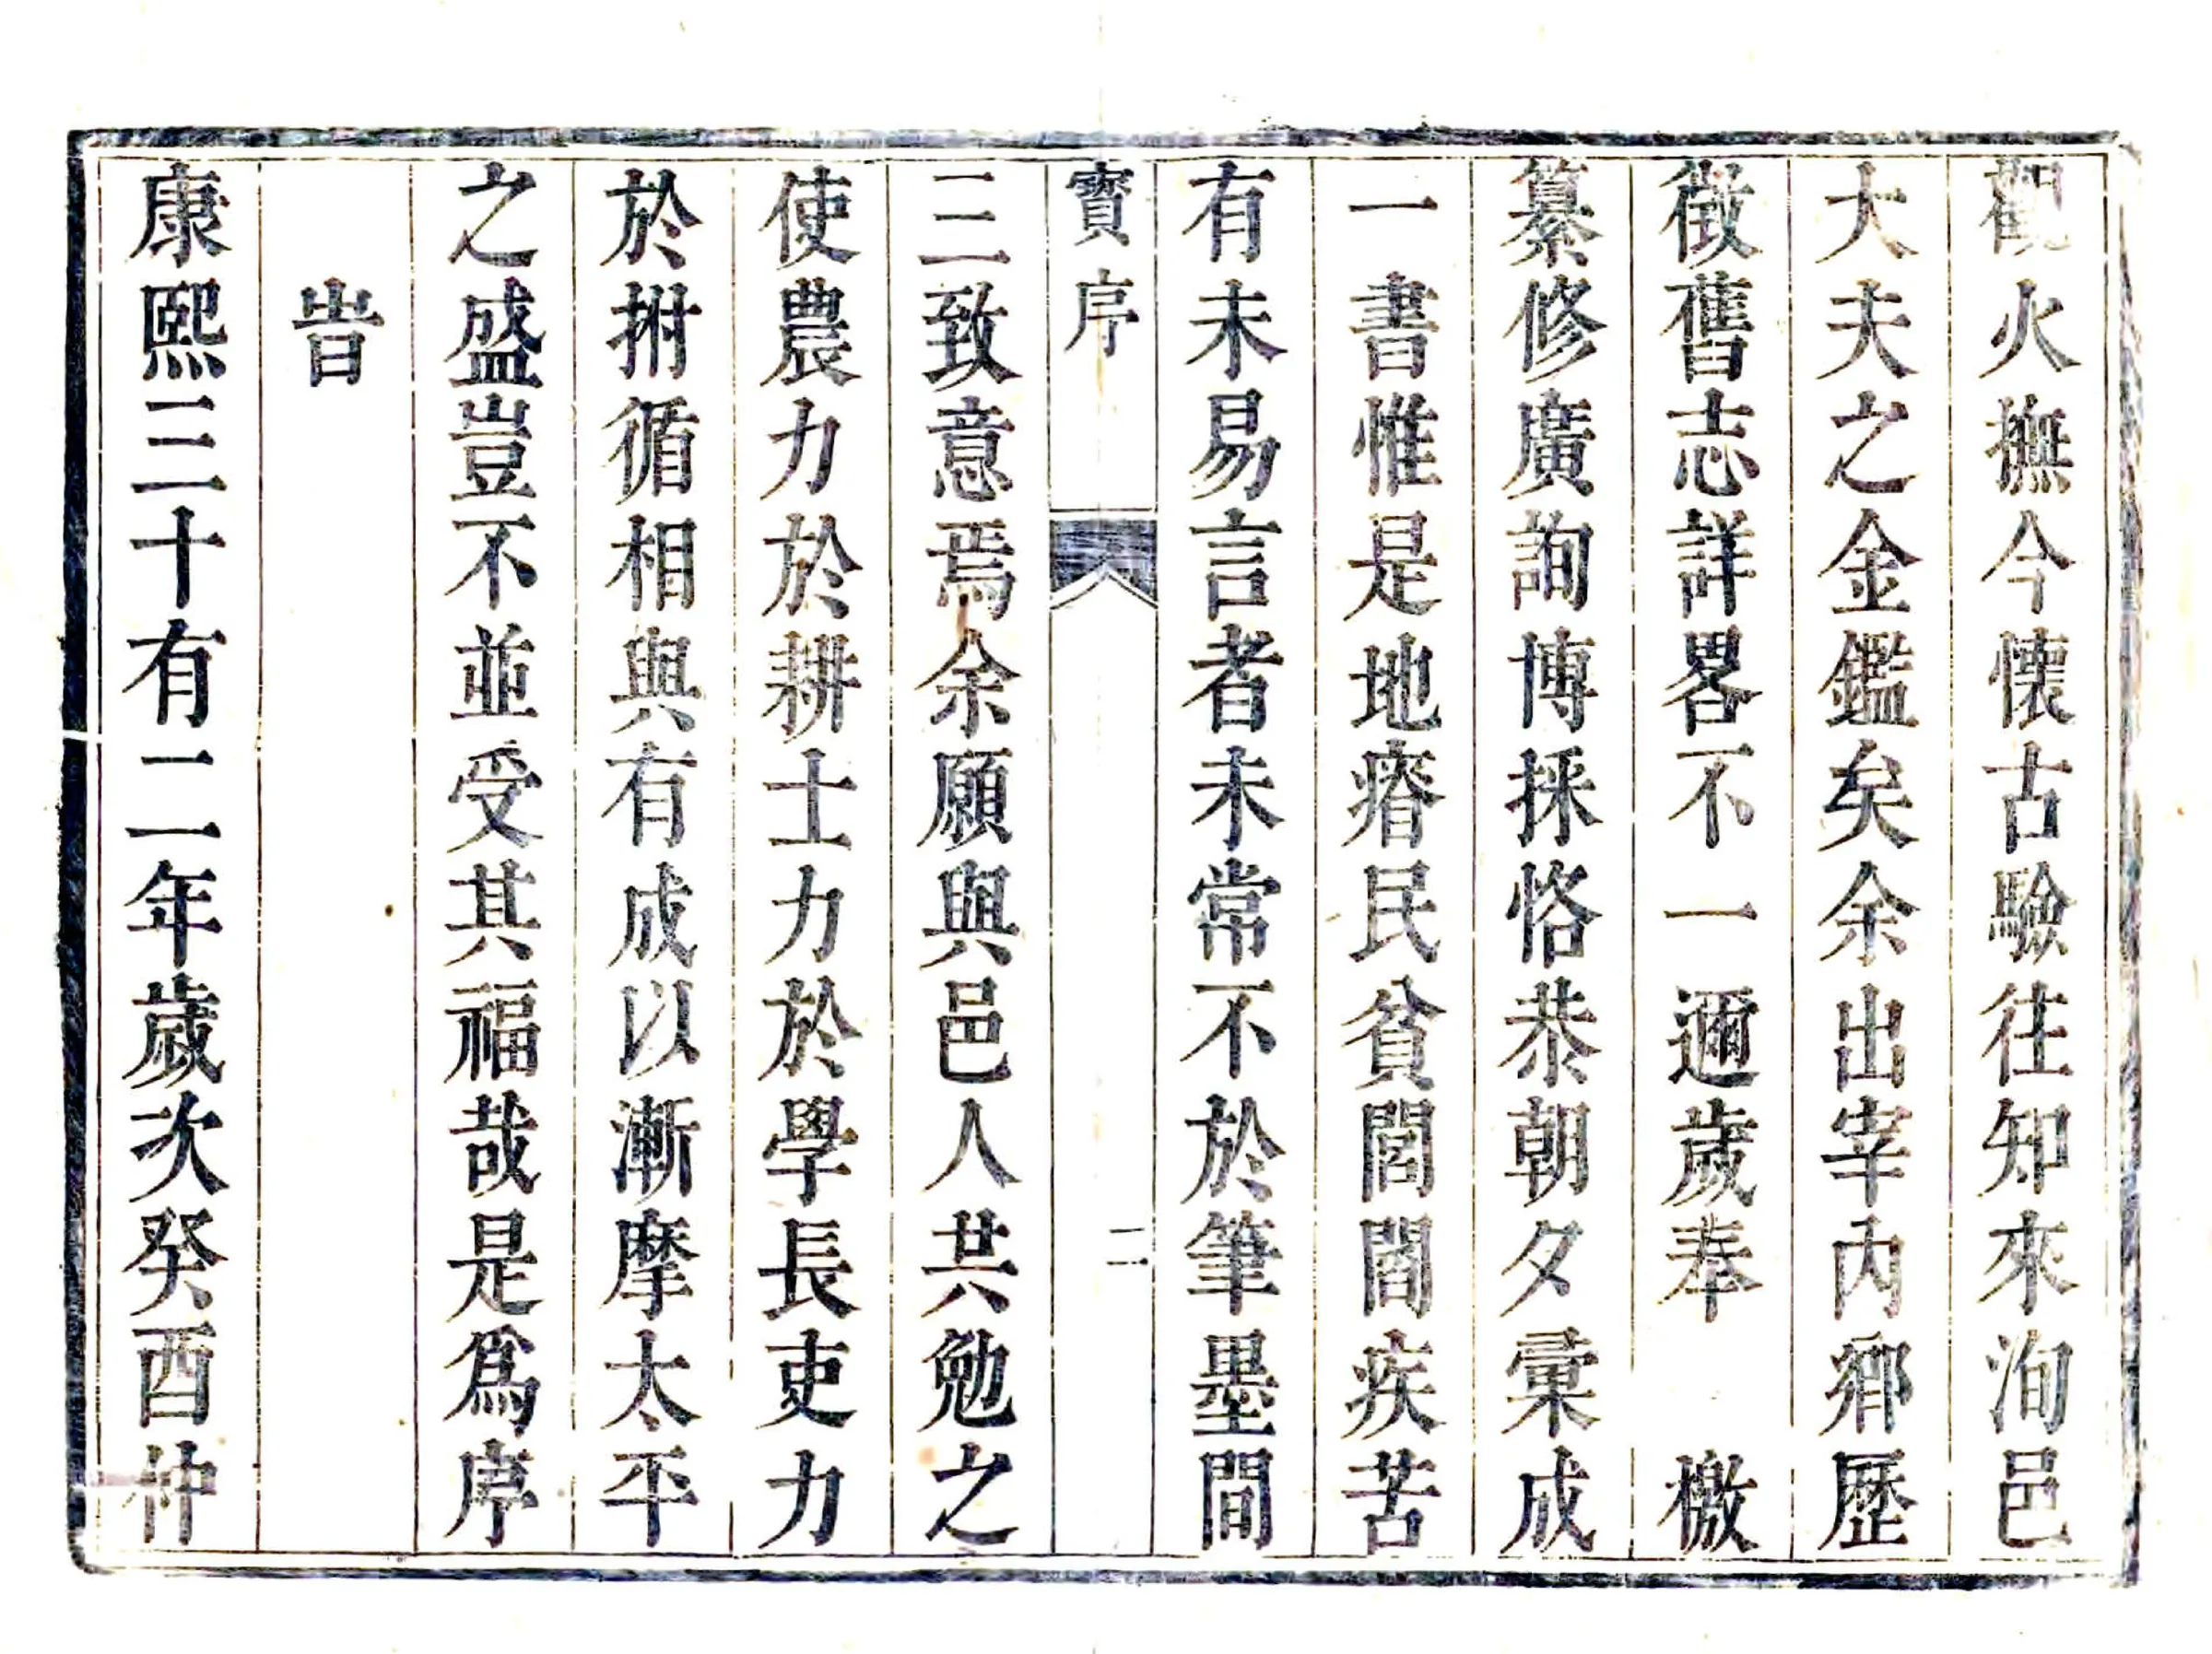 觀火撫今懷古驗往知來洵邑
大夫之金鑑矣余出宰內鄉歷
徴舊志詳畧不一邇歲奉　檄
纂修廣詢博採恪恭朝夕彙成
一書惟是地瘠民貧閭閻疾苦
有未易言者未常不於筆墨間
寶序
二
三致意焉余願與邑人共勉之
使農力於耕士力於學長吏力
於拊循相與有成以漸摩太平
之盛豈不並受其福哉是爲序
旹
康熙三十有二年歲次癸酉仲